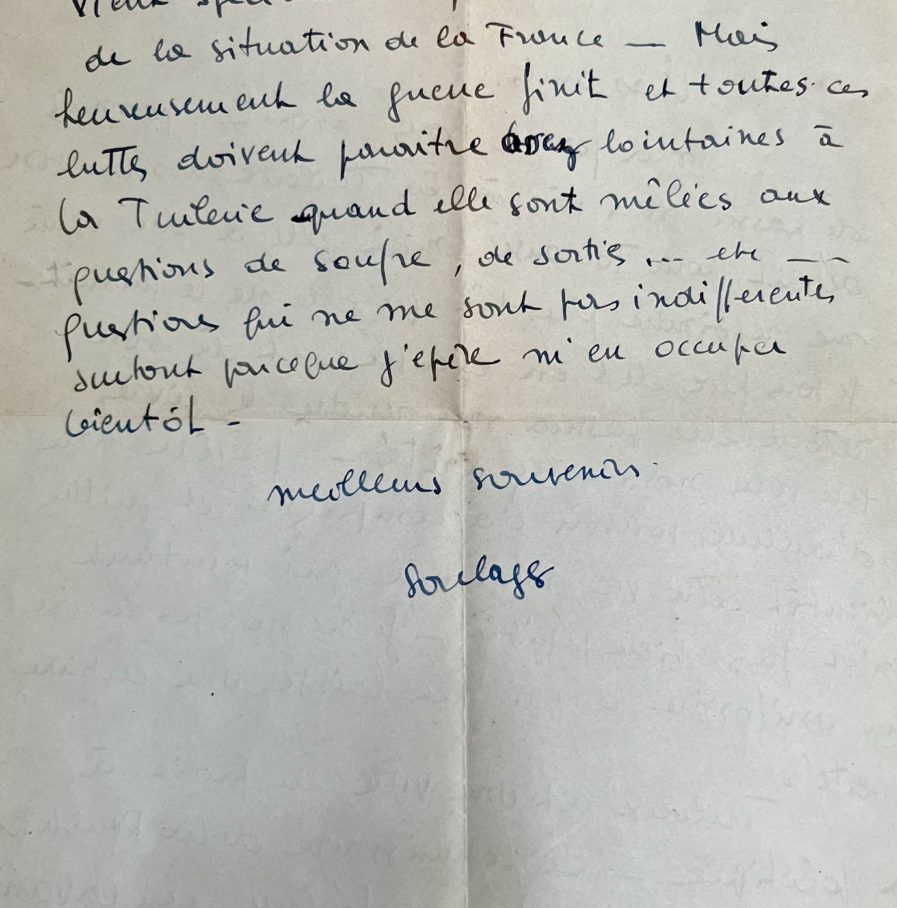 de la situation de la France — Mais
heureusement la guerre finit et toutes ces
luttes doivent paraitre assez lointaines à
la Tuilerie quand elle sont mêlées aux
questions de soufre, de sorties ... etc — —
questions qui ne me sont pas indifferentes
surtout parceque j'epère m'en occuper
bientôt -
meilleurs souvenirs.
Soulages